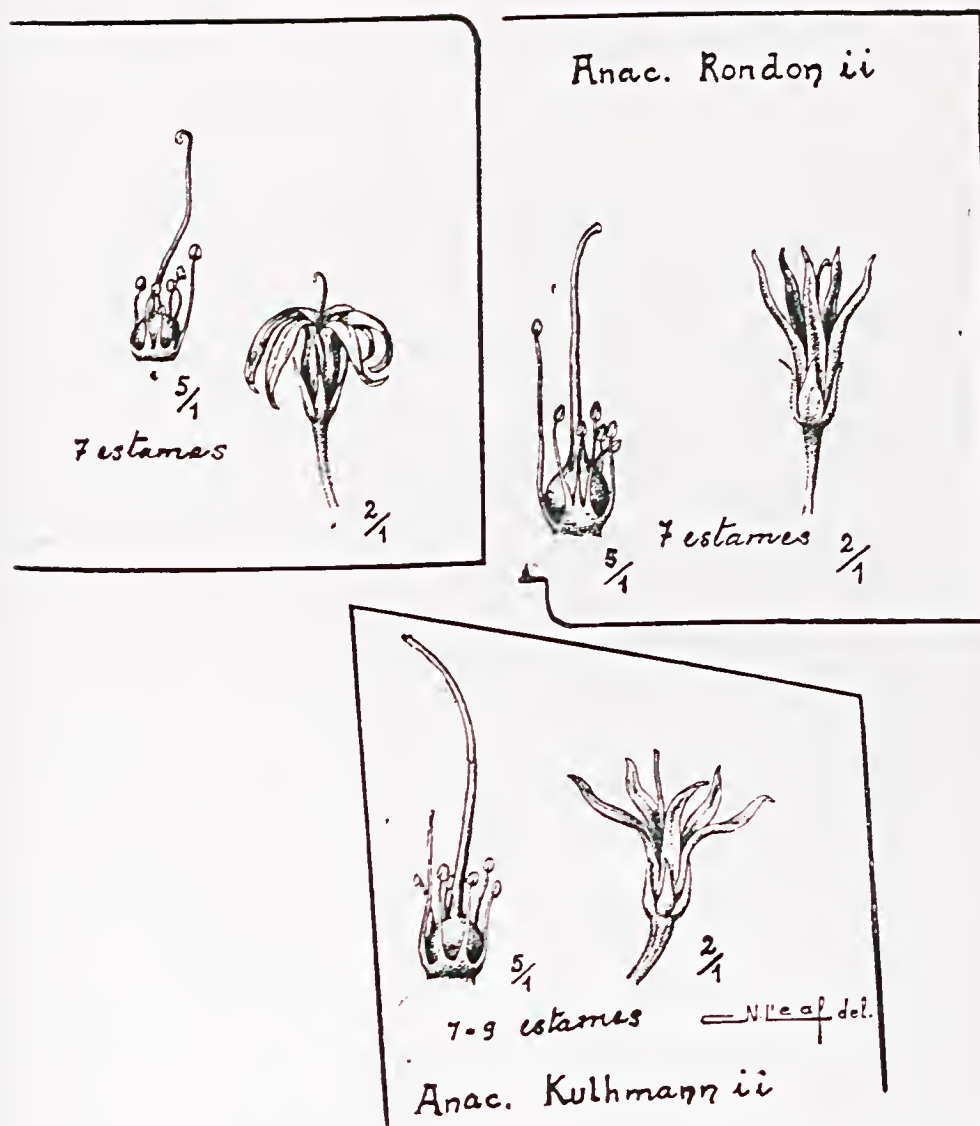 5/1
7 estames
2/1
Anac. Rondonii
5/1
7 estames
2/1
5/1
2/1
7-9 estames
del.
Anac. Kulhmannii